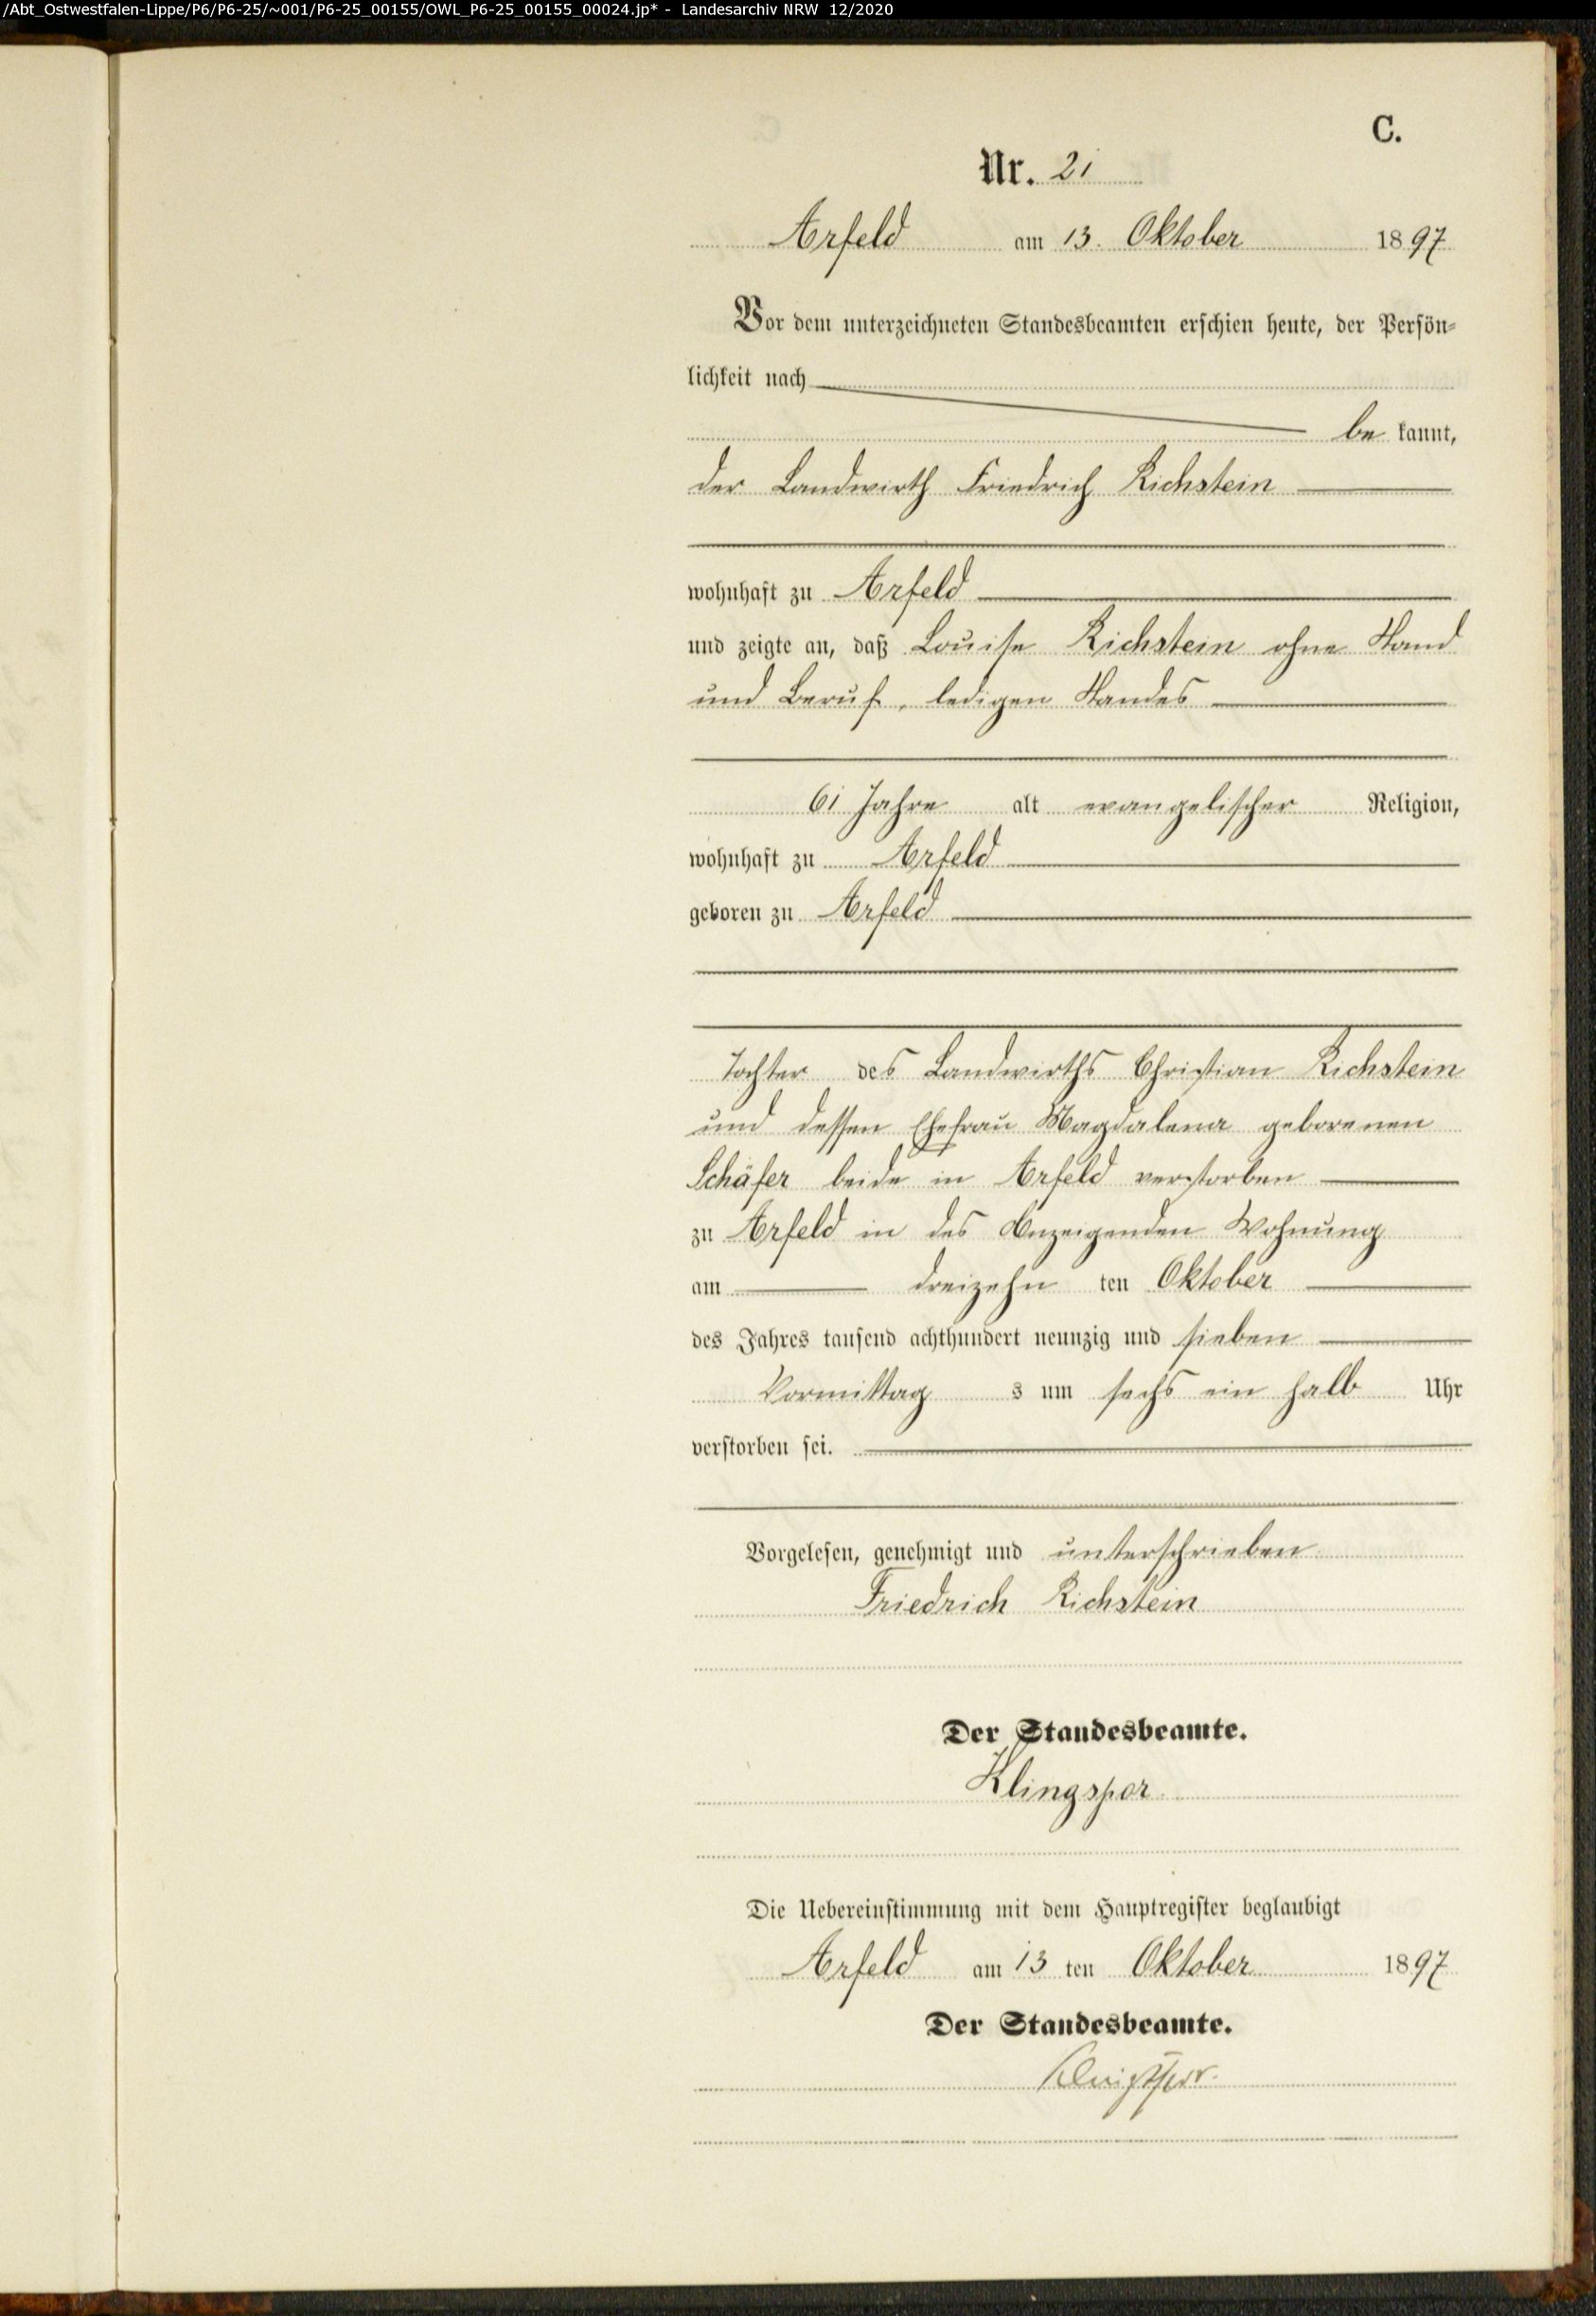 /Abt_Ostwestfalen-Lippe/P6/P6-25/~001/P6-25_00155/OWL_P6-25_00155_00024.jp* - Landesarchiv NRW 12/2020
C.
Nr. 21
Arfeld am 13. Oktober 1897
Vor dem unterzeichneten Standesbeamten erschien heute, der Persön-
lichkeit nach
be kannt,
der Landwirth Friedrich Richstein
wohnhaft zu Arfeld
und zeigte an, daß Louise Richstein ohne Stand
und Beruf, ledigen Standes
61 Jahre alt evangelischer Religion,
wohnhaft zu Arfeld
geboren zu Arfeld
Tochter des Landwirths Christian Richstein
und dessen Ehefrau Magdalena geborenen
Schäfer beide in Arfeld verstorben
zu Arfeld in des Anzeigenden Wohnung
am dreizehn ten Oktober
des Jahres tausend achthundert neunzig und sieben
Vormittag s um sechs ein halb Uhr
verstorben sei.
Vorgelesen, genehmigt und unterschrieben
Friedrich Richstein
Der Standesbeamte.
Klingspor
Die Uebereinstimmung mit dem Hauptregister beglaubigt
Arfeld am 13 ten Oktober 1897
Der Standesbeamte.
Klingspor.